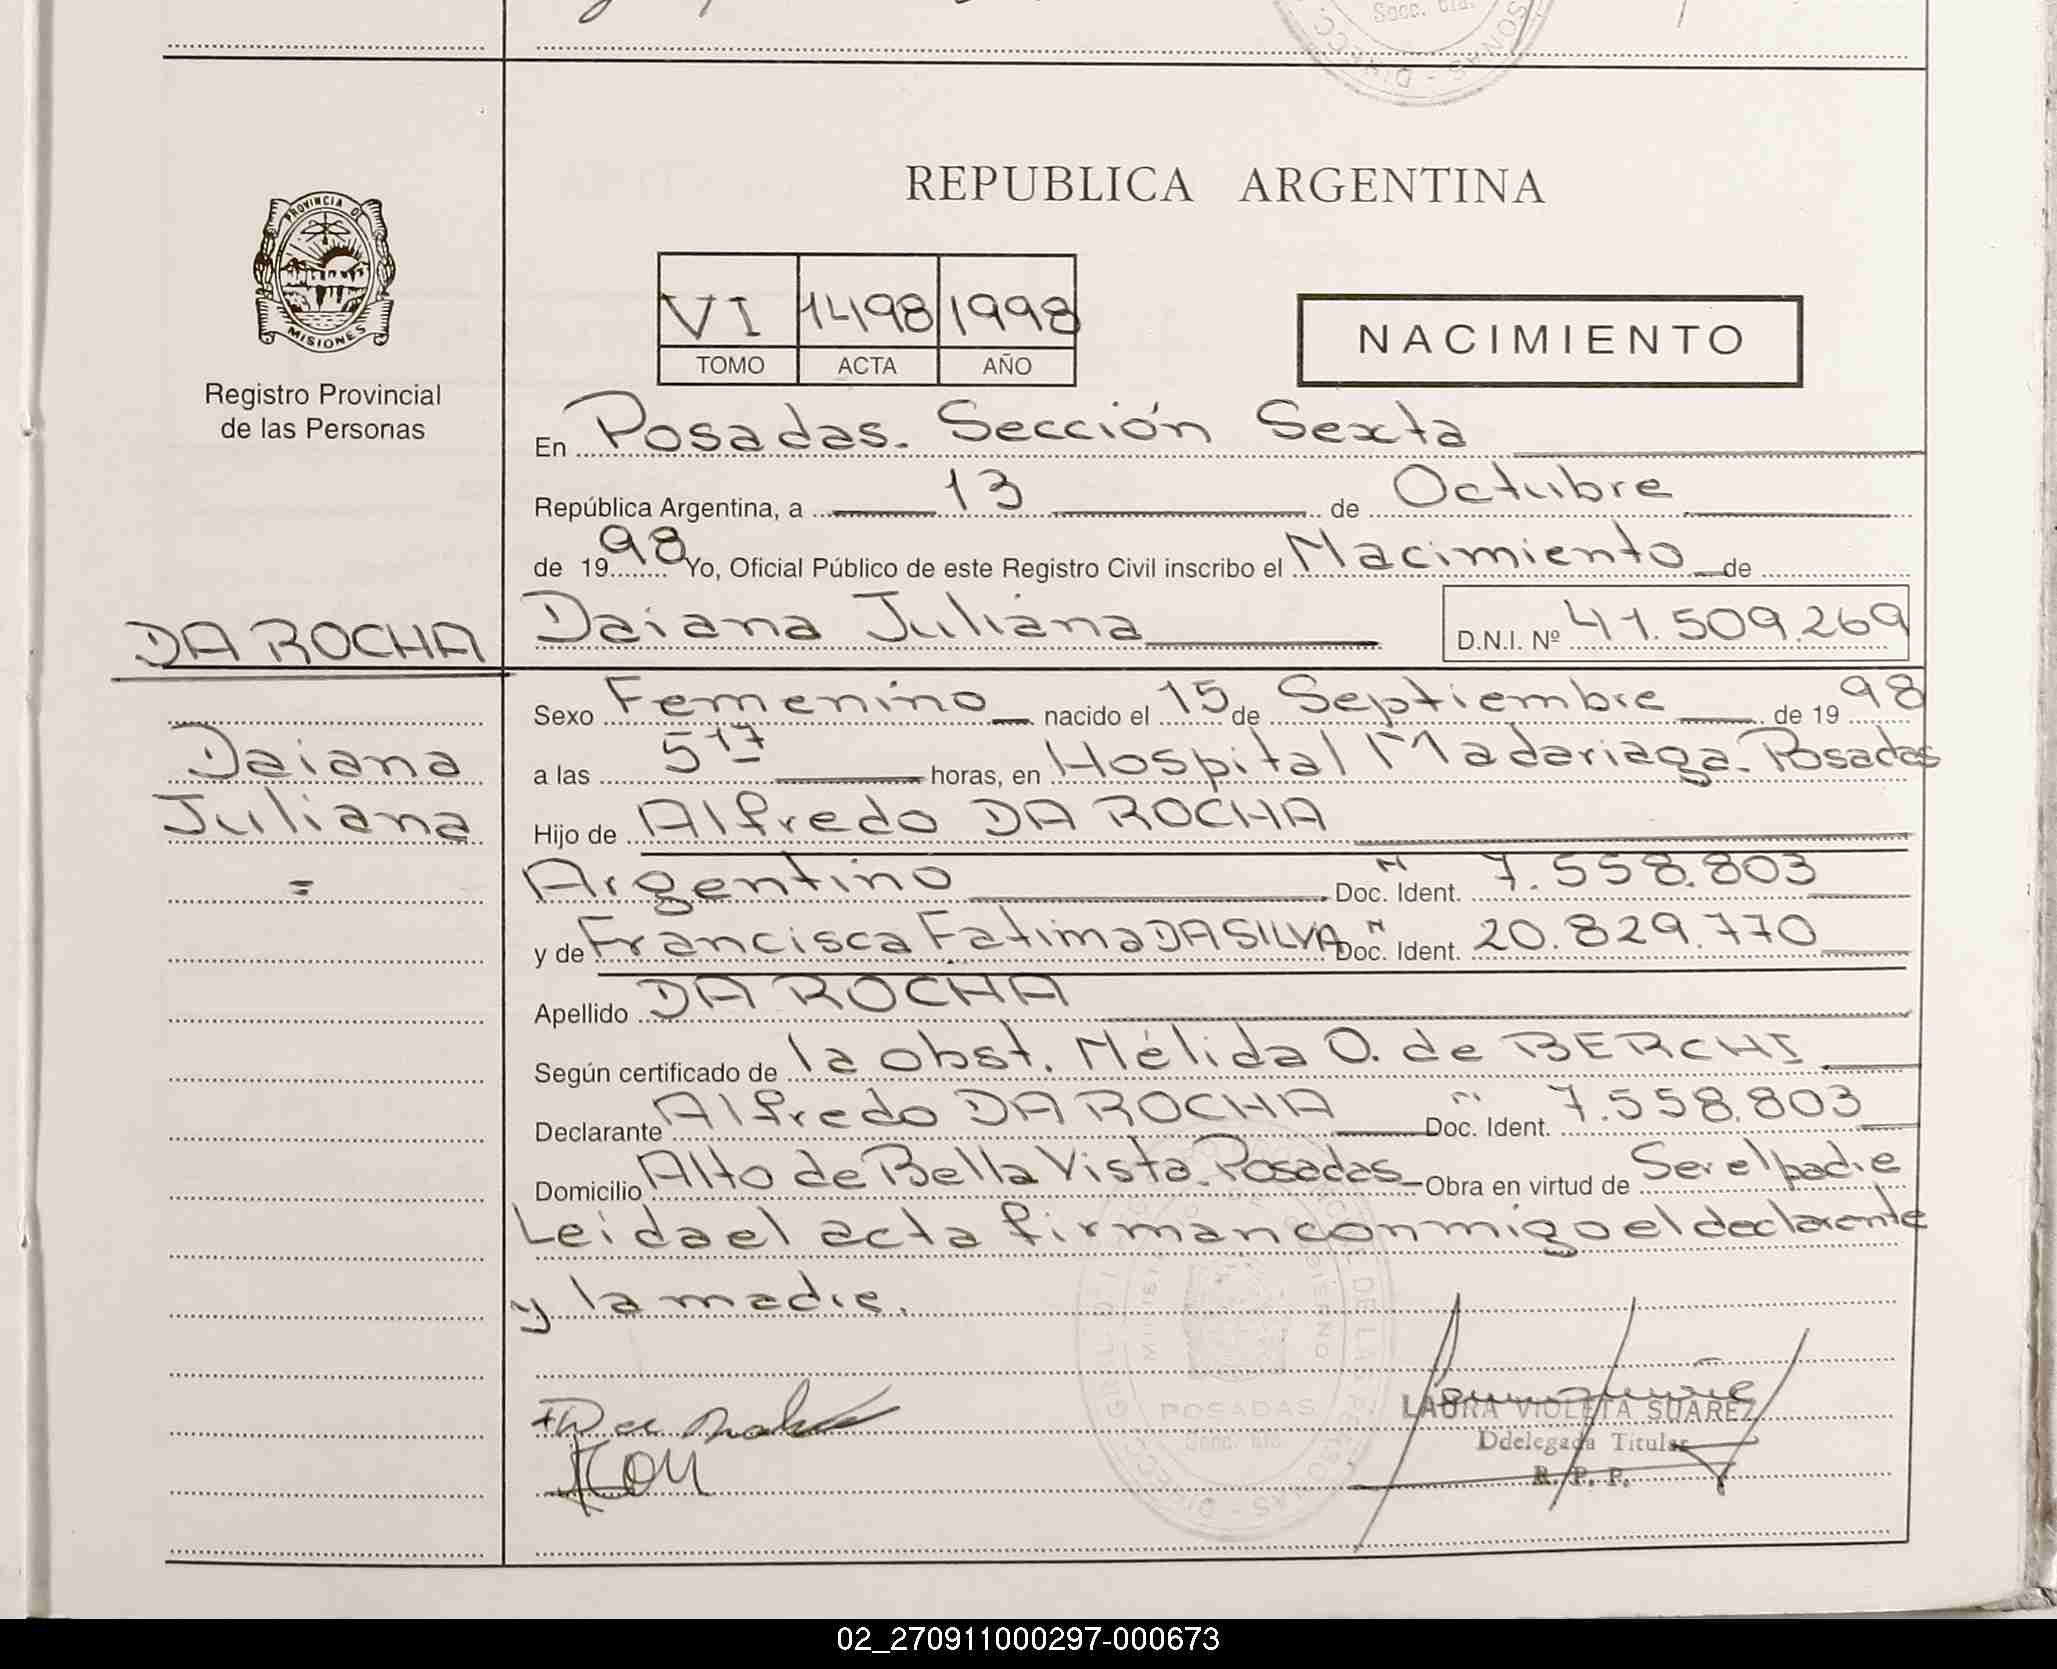 REPUBLICA ARGENTINA
PROVINCIA DE
MISIONES
Registro Provincial
de las Personas
VI 1498 1998
TOMO ACTA AÑO
NACIMIENTO
En Posadas. Sección Sexta
República Argentina, a 13 de Octubre
de 1998 Yo, Oficial Público de este Registro Civil inscribo el Nacimiento de
DA ROCHA
Daiana Juliana D.N.I. Nº 41.509.269
Sexo Femenino nacido el 15 de Septiembre de 1998
Daiana
Juliana
=
a las 5 17 horas, en Hospital Madariaga. Posadas
Hijo de Alfredo DA ROCHA
Argentino Doc. Ident. 7.558.803
y de Francisca Fatima DA SILVA Doc. Ident. 20.829.770
Apellido DA ROCHA
Según certificado de la obst. Nélida O. de BERCHI
Declarante Alfredo DA ROCHA Doc. Ident. 7.558.803
Domicilio Alto de Bella Vista. Posadas Obra en virtud de Ser el padre
Leida el acta firman conmigo el declarante
y la madre.
POSADAS
LAURA VIOLETA SUAREZ
Ddelegada Titular
R. P. P.
02_270911000297-000673